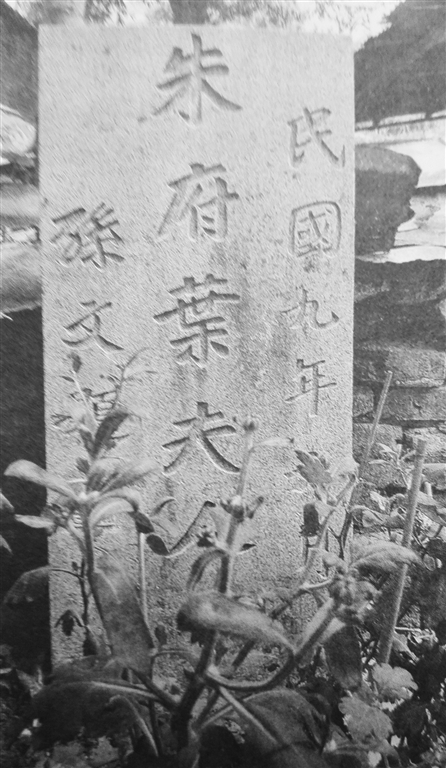 民國九年
朱府葉夫人
孫文